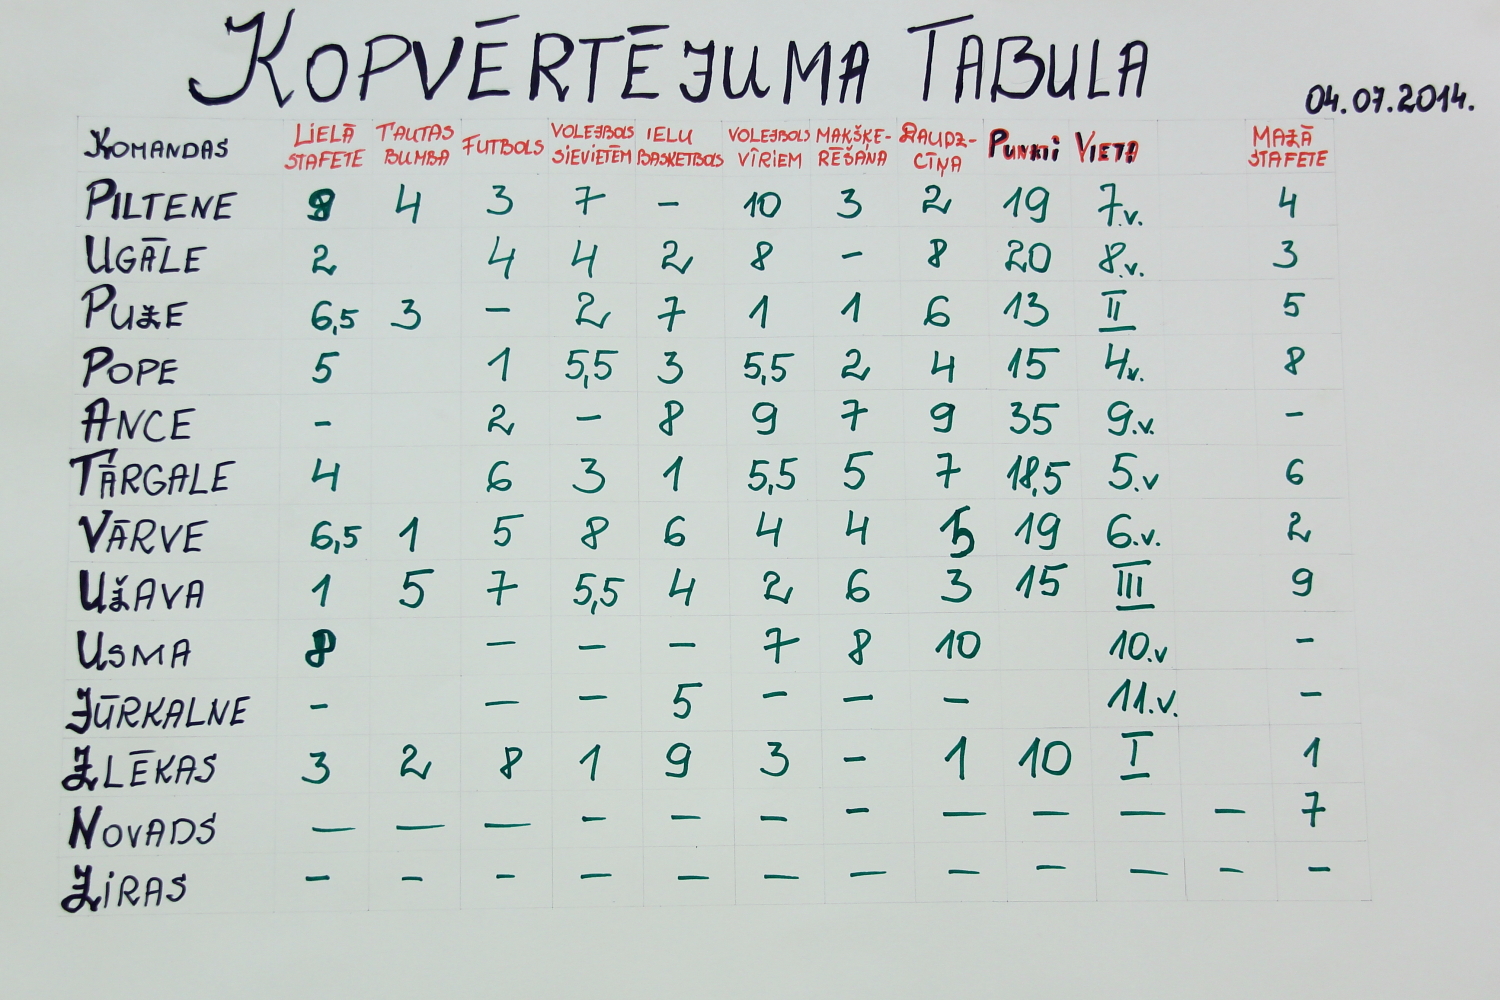 KOPVĒRTĒJUMA TABULA
04.07.2014.
KOMANDAS LIELĀ STAFETE TAUTAS BUMBA FUTBOLS VOLEJBOLS SIEVIETĒM IELU BASKETBOLS VOLEJBOLS VĪRIEM MAKŠĶERĒŠANA DAUDZCĪŅA PUNKTI VIETA MAZĀ STAFETE
PILTENE 8 4 3 7 - 10 3 2 19 7.v. 4
UGĀLE 2 4 4 2 8 - 8 20 8.v. 3
PUZE 6,5 3 - 2 7 1 1 6 13 II 5
POPE 5 1 5,5 3 5,5 2 4 15 4v. 8
ANCE - 2 - 8 9 7 9 35 9.v. -
TĀRGALE 4 6 3 1 5,5 5 7 18,5 5.v 6
VĀRVE 6,5 1 5 8 6 4 4 5 19 6.v. 2
UŽAVA 1 5 7 5,5 4 2 6 3 15 III 9
USMA 8 - - - 7 8 10 10.v -
JŪRKALNE - - - 5 - - - 11.v. -
ZLĒKAS 3 2 8 1 9 3 - 1 10 I 1
NOVADS - - - - - - - - - - - 7
ZIRAS - - - - - - - - - - - -